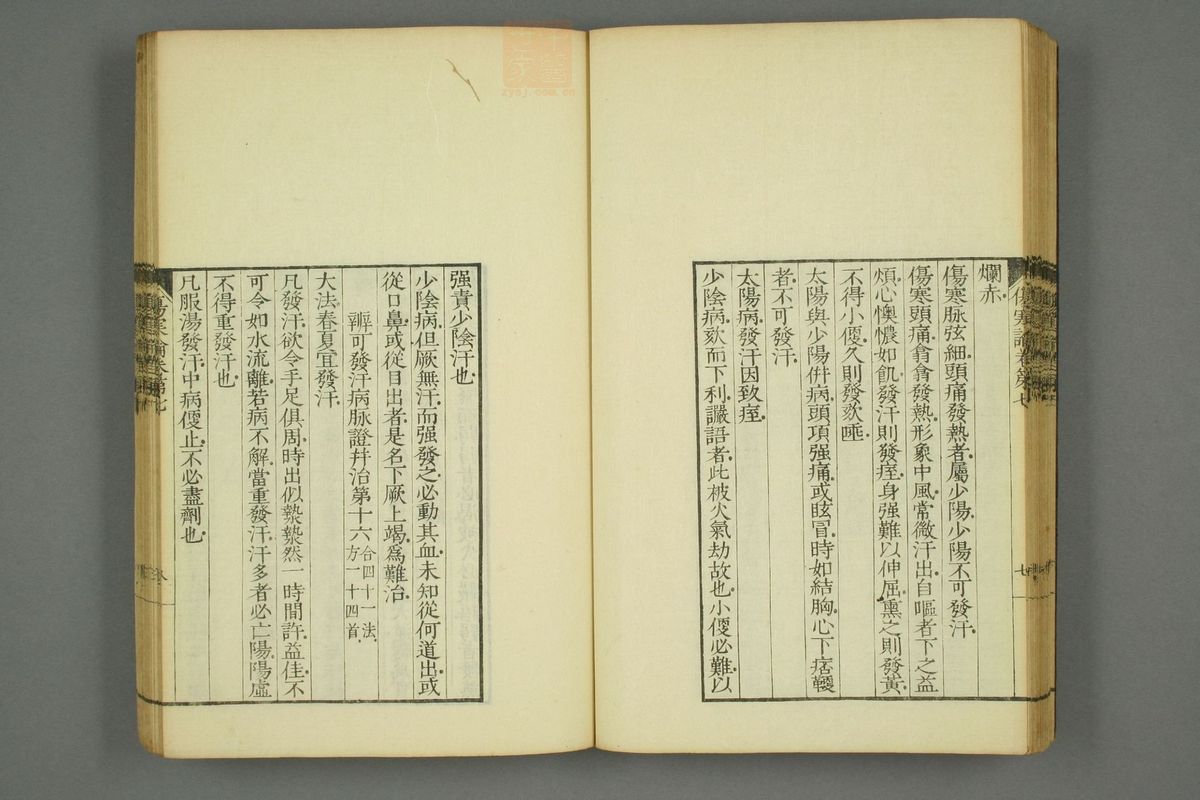 爛赤
傷寒脉弦細頭痛發熱者屬少陽少陽不可發汗
傷寒頭痛翕翕發熱形象中風常微汗出自嘔者下之益
煩心懊憹如飢發汗則發痓身强難以伸屈熏之則發黃
不得小便久則發欬唾
太陽與少陽併病頭項强痛或眩冒時如結胸心下痞鞕
者不可發汗
太陽病發汗因致痓
少陰病欬而下利讝語者此被火氣劫故也小便必難以
强責少陰汗也
少陰病但厥無汗而强發之必動其血未知從何道出或
從口鼻或從目出者是名下厥上竭爲難治
辨可發汗病脉證幷治第十六 合四十一法 方一十四首
大法春夏宜發汗
凡發汗欲令手足俱周時出似漐漐然一時間許益佳不
可令如水流離若病不解當重發汗汗多者必亡陽陽虛
不得重發汗也
凡服湯發汗中病便止不必盡劑也
傷寒論卷第七
zysj.com.cn